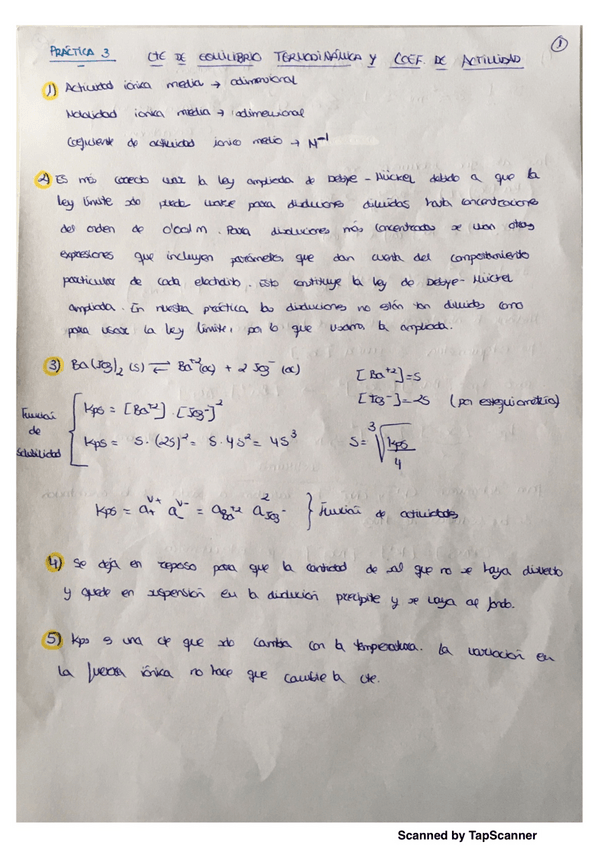 PRÁCTICA 3 CTE DE EQUILIBRIO TERMODINÁMICA Y COEF. DE ACTIVIDAD
1
1) Actividad iónica media → adimensional
Molalidad iónica media → adimensional
Coeficiente de actividad iónico medio → M⁻¹
2) Es más correcto usar la ley ampliada de Debye-Hückel debido a que la
ley límite sólo puede usarse para disoluciones diluidas hasta concentraciones
del orden de 0'001 m. Para disoluciones más concentradas se usan otras
expresiones que incluyen parámetros que dan cuenta del comportamiento
particular de cada electrolito. Esto constituye la ley de Debye-Hückel
ampliada. En nuestra práctica las disoluciones no están tan diluidas como
para usar la ley límite, por lo que usamos la ampliada.
3) Ba(IO3)2 (s) ⇌ Ba⁺²(ac) + 2 IO3⁻ (ac)
[Ba⁺²] = S
[IO3⁻] = 2S (por estequiometría)
Función de solubilidad
Kps = [Ba⁺²] · [IO3⁻]²
Kps = S · (2S)² = S · 4S² = 4S³
S = ∛(Kps/4)
Kps = a₊^ν⁺ a₋^ν⁻ = a Ba⁺² a² IO3⁻ } Función de actividades
4) Se deja en reposo para que la cantidad de sal que no se haya disuelto
y quede en suspensión en la disolución precipite y se vaya al fondo.
5) Kps es una cte que sólo cambia con la temperatura. La variación en
la fuerza iónica no hace que cambie la cte.
Scanned by TapScanner